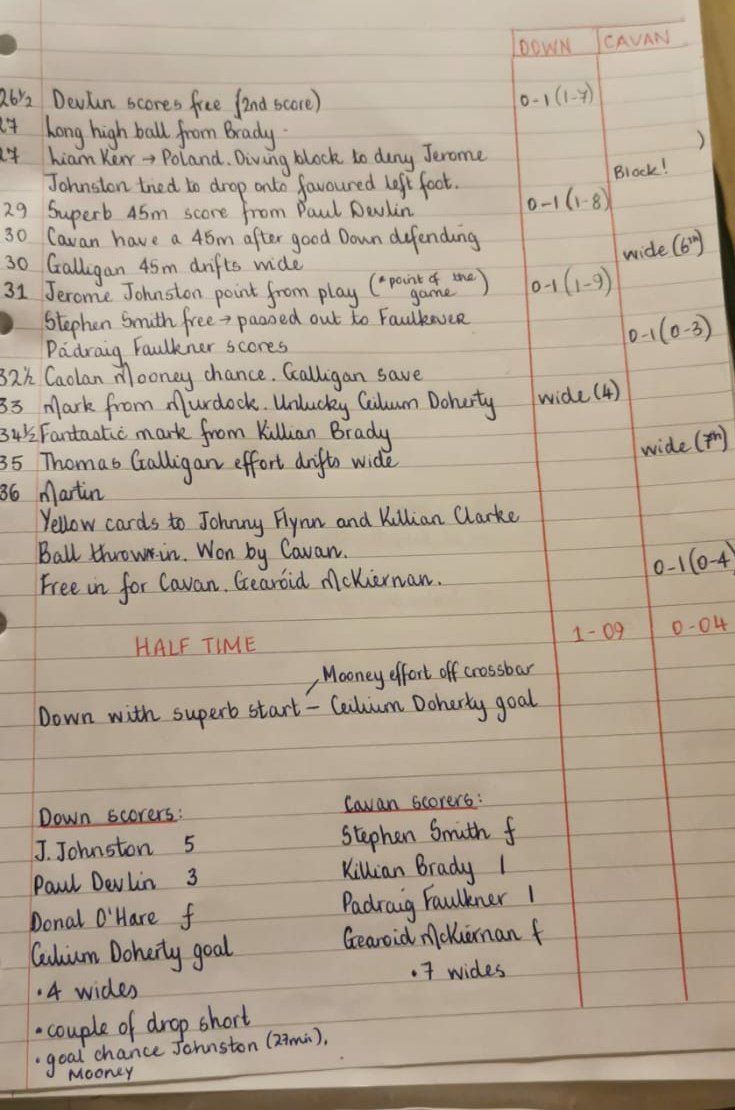 DOWN CAVAN
26½ Devlin scores free (2nd score) 0-1 (1-7)
27 Long high ball from Brady.
27 Liam Kerr → Poland. Diving block to deny Jerome
Johnston tried to drop onto favoured left foot. Block!
29 Superb 45m score from Paul Devlin 0-1 (1-8)
30 Cavan have a 45m after good Down defending
30 Galligan 45m drifts wide wide (6th)
31 Jerome Johnston point from play (*point of the game) 0-1 (1-9)
Stephen Smith free → passed out to Faulkner
Pádraig Faulkner scores 0-1 (0-3)
32½ Caolan Mooney chance. Galligan save
33 Mark from Murdock. Unlucky Ceilium Doherty wide (4)
34½ Fantastic mark from Killian Brady
35 Thomas Galligan effort drifts wide wide (7th)
36 Martin
Yellow cards to Johnny Flynn and Killian Clarke
Ball thrown in. Won by Cavan.
Free in for Cavan. Gearóid McKiernan. 0-1 (0-4
HALF TIME 1-09 0-04
Mooney effort off crossbar
Down with superb start - Ceilium Doherty goal
Down scorers:
J. Johnston 5
Paul Devlin 3
Donal O'Hare f
Ceilium Doherty goal
• 4 wides
• couple of drop short
• goal chance Johnston (27min),
Mooney
Cavan scorers:
Stephen Smith f
Killian Brady 1
Padraig Faulkner 1
Gearoid McKiernan f
• 7 wides